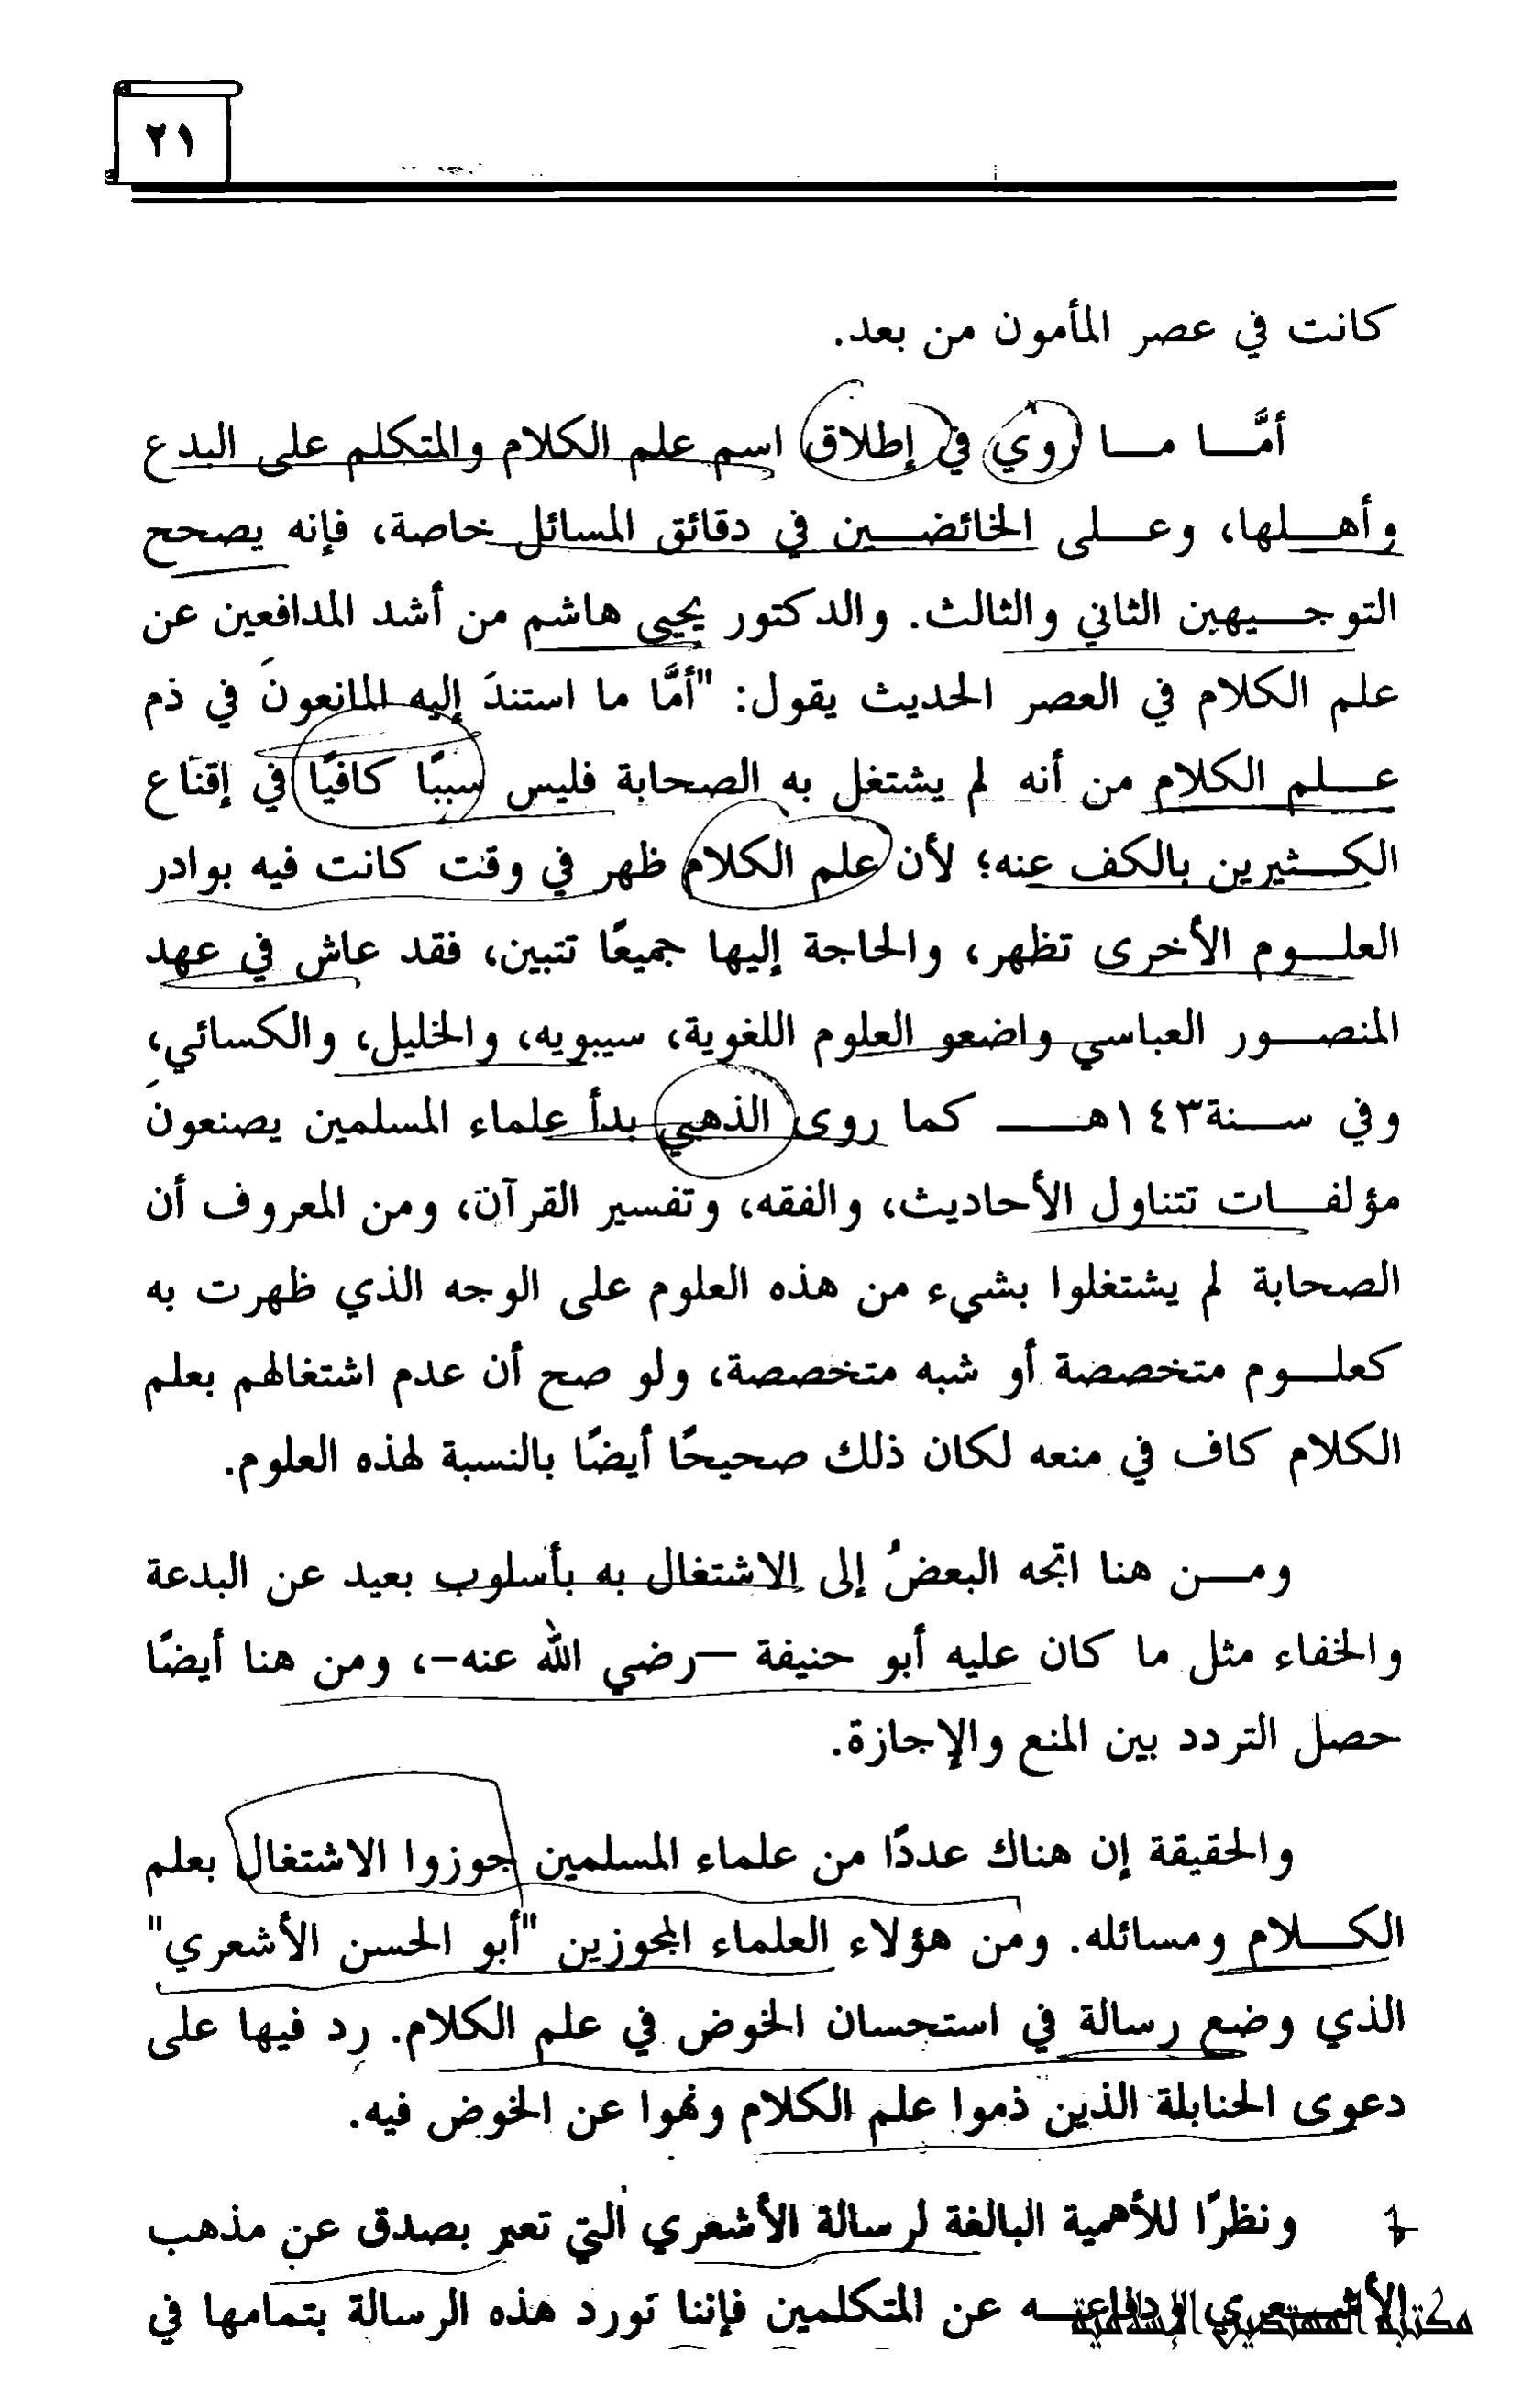 ٢١
كانت في عصر المأمون من بعد.
أمَّا ما روي في إطلاق اسم علم الكلام والمتكلم على البدع
وأهلها، وعلى الخائضين في دقائق المسائل خاصة، فإنه يصحح
التوجيهين الثاني والثالث. والدكتور يحيى هاشم من أشد المدافعين عن
علم الكلام في العصر الحديث يقول: "أمَّا ما استندَ إليه المانعونَ في ذم
علم الكلام من أنه لم يشتغل به الصحابة فليس سببًا كافيًا في إقناع
الكثيرين بالكف عنه؛ لأن علم الكلام ظهر في وقت كانت فيه بوادر
العلوم الأخرى تظهر، والحاجة إليها جميعًا تتبين، فقد عاش في عهد
المنصور العباسي واضعو العلوم اللغوية، سيبويه، والخليل، والكسائي،
وفي سنة١٤٣هـ كما روى الذهبي بدأ علماء المسلمين يصنعونَ
مؤلفات تتناول الأحاديث، والفقه، وتفسير القرآن، ومن المعروف أن
الصحابة لم يشتغلوا بشيء من هذه العلوم على الوجه الذي ظهرت به
كعلوم متخصصة أو شبه متخصصة، ولو صح أن عدم اشتغالهم بعلم
الكلام كاف في منعه لكان ذلك صحيحًا أيضًا بالنسبة لهذه العلوم.
ومن هنا اتجه البعضُ إلى الاشتغال به بأسلوب بعيد عن البدعة
والخفاء مثل ما كان عليه أبو حنيفة –رضي الله عنه–، ومن هنا أيضًا
حصل التردد بين المنع والإجازة.
والحقيقة إن هناك عددًا من علماء المسلمين جوزوا الاشتغال بعلم
الكلام ومسائله. ومن هؤلاء العلماء المجوزين "أبو الحسن الأشعري"
الذي وضع رسالة في استحسان الخوض في علم الكلام. رد فيها على
دعوى الحنابلة الذين ذموا علم الكلام ونهوا عن الخوض فيه.
ونظرًا للأهمية البالغة لرسالة الأشعري التي تعبر بصدق عن مذهب
الأشعري ودفاعه عن المتكلمين فإننا نورد هذه الرسالة بتمامها في
مكتبة المهتدين الإسلامية